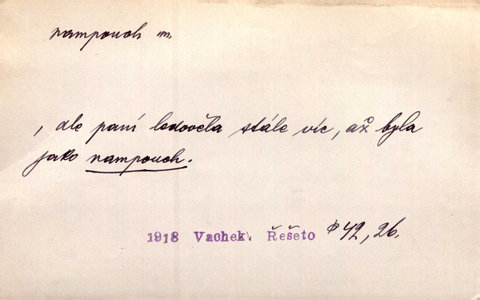 rampouch m.
, ale paní ledověla stále víc, až byla
jako rampouch.
1918 Vachek, Řešeto 42, 26.